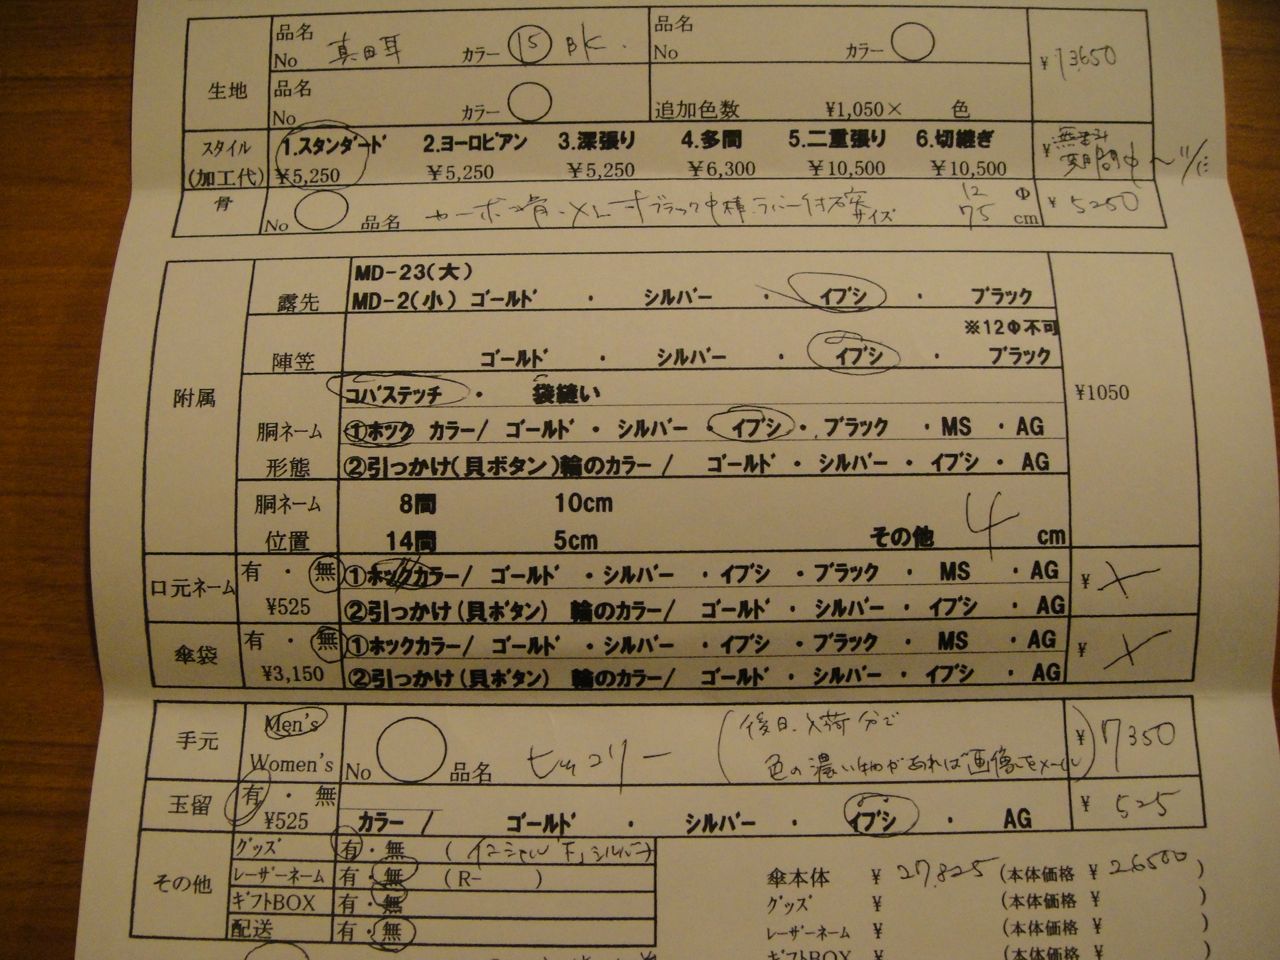 品名 真田耳 カラー 15 BK. 品名 カラー
No No
生地 ¥13650
品名
No カラー 追加色数 ¥1,050× 色
スタイル 1.スタンダード 2.ヨーロピアン 3.深張り 4.多間 5.二重張り 6.切継ぎ
(加工代) ¥5,250 ¥5,250 ¥5,250 ¥6,300 ¥10,500 ¥10,500 ¥ 無料 期間中
骨 No 品名 カーボン骨 ブラック中棒 ラバー付 サイズ 12 Φ 75 cm ¥5250
MD-23(大)
露先 MD-2(小) ゴールド ・ シルバー ・ イブシ ・ ブラック
※12Φ不可
陣笠 ゴールド ・ シルバー ・ イブシ ・ ブラック
附属 コバステッチ ・ 袋縫い ¥1050
胴ネーム ①ホック カラー/ ゴールド ・ シルバー ・ イブシ ・ ブラック ・ MS ・ AG
形態 ②引っかけ(貝ボタン)輪のカラー/ ゴールド ・ シルバー ・ イブシ ・ AG
胴ネーム 8間 10cm
位置 14間 5cm その他 4 cm
口元ネーム 有 ・ 無 ①ホックカラー/ ゴールド ・ シルバー ・ イブシ ・ ブラック ・ MS ・ AG ¥ ×
¥525 ②引っかけ(貝ボタン) 輪のカラー/ ゴールド ・ シルバー ・ イブシ ・ AG
傘袋 有 ・ 無 ①ホックカラー/ ゴールド ・ シルバー ・ イブシ ・ ブラック ・ MS ・ AG ¥ ×
¥3,150 ②引っかけ(貝ボタン) 輪のカラー/ ゴールド ・ シルバー ・ イブシ ・ AG
手元 Men's (後日、入荷分で ¥7350
Women's No 品名 ヒッコリー 色の濃い物があれば画像をメール)
玉留 有 ・ 無 ¥525
¥525 カラー / ゴールド ・ シルバー ・ イブシ ・ AG
グッズ 有・無 (イニシャル「F」シルバー)
その他 レーザーネーム 有・無 (R- ) 傘本体 ¥27,825 (本体価格 ¥26500)
ギフトBOX 有・無 グッズ ¥ (本体価格 ¥ )
配送 有・無 レーザーネーム ¥ (本体価格 ¥ )
ギフトBOX ¥ (本体価格 ¥